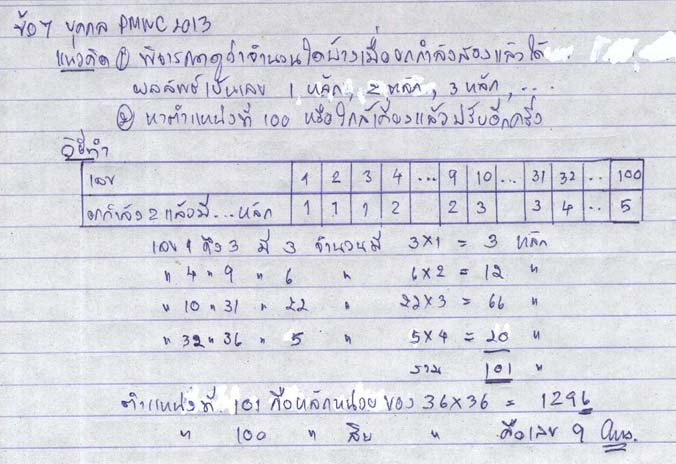 ข้อ 7 บุคคล PMWC 2013
แนวคิด ① พิจารณาดูว่าจำนวนใดบ้างเมื่อยกกำลังสองแล้วได้
ผลลัพธ์เป็นเลข 1 หลัก, 2 หลัก, 3 หลัก, ...
② หาตำแหน่งที่ 100 หรือใกล้เคียงแล้วปรับอีกครั้ง
วิธีทำ
เลข 1 2 3 4 ... 9 10 ... 31 32 ... 100
ยกกำลัง 2 แล้วมี...หลัก 1 1 1 2 2 3 3 4 .. 5
เลข 1 ถึง 3 มี 3 จำนวนมี 3×1 = 3 หลัก
" 4 " 9 " 6 " 6×2 = 12 "
" 10 " 31 " 22 " 22×3 = 66 "
" 32 " 36 " 5 " 5×4 = 20 "
รวม 101 "
ตำแหน่งที่ 101 คือหลักหน่วย ของ 36×36 = 1296
" 100 " สิบ " คือเลข 9 Ans.